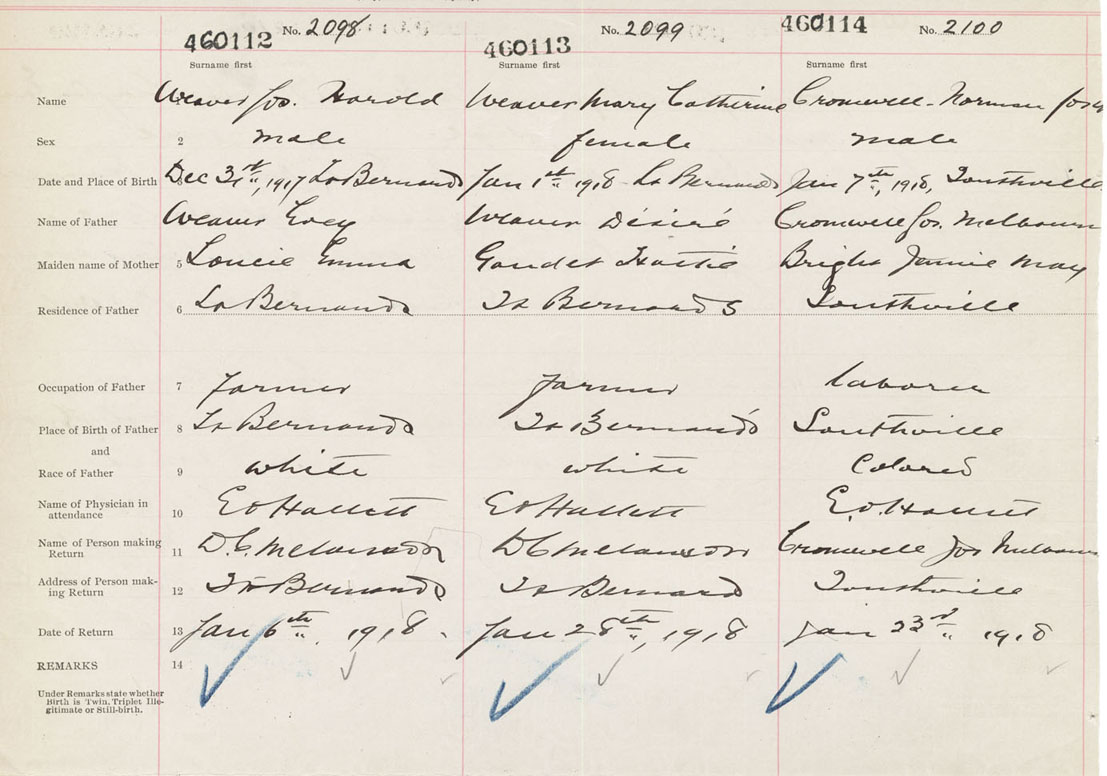 460112 No. 2098 460113 No. 2099 460114 No. 2100
Surname first Surname first Surname first
Name Weaver Jos. Harold Weaver Mary Catherine Cromwell - Norman
Sex 2 male female male
Date and Place of Birth Dec 31st, 1917 St Bernards Jan 1st 1918 St Bernards Jan 7th, 1918, Southville
Name of Father Weaver Weaver Désiré Cromwell Jos. Melbourn
Maiden name of Mother 5 Emma Gaudet Hattie Bright Jennie May
Residence of Father 6 St Bernards St Bernards Southville
Occupation of Father 7 Farmer farmer laborer
Place of Birth of Father 8 St Bernards St Bernards Southville
and
Race of Father 9 white white Colored
Name of Physician in
attendance 10 E O Hallett E O Hallett E. O. Hallett
Name of Person making
Return 11 D. C. Melanson D C Melanson Cromwell Jos Melbourn
Address of Person mak-
ing Return 12 St Bernards St Bernard Southville
Date of Return 13 Jan 6th, 1918. Jan 28th, 1918 Jan 23rd 1918
REMARKS 14
Under Remarks state whether
Birth is Twin, Triplet Ille-
gitimate or Still-birth.